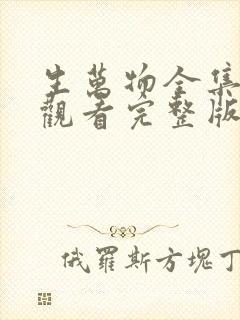 生萬物全集
觀看完整版
俄羅斯方塊丁